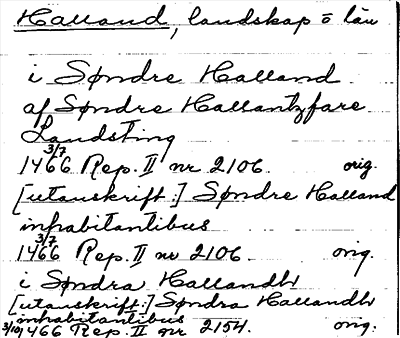 Halland, landskap o län
i Søndre Halland
af Søndre Hallantzfare
Landsting
3/7
1466 Rep. II nr 2106. orig.
[utanskrift:] Søndre Halland
inhabitantibus
3/7
1466 Rep. II nr 2106. orig.
i Søndra Hallandh
[utanskrift:] Søndra Hallandh
inhabitantibus
3/10 1466 Rep. II nr 2154. orig.